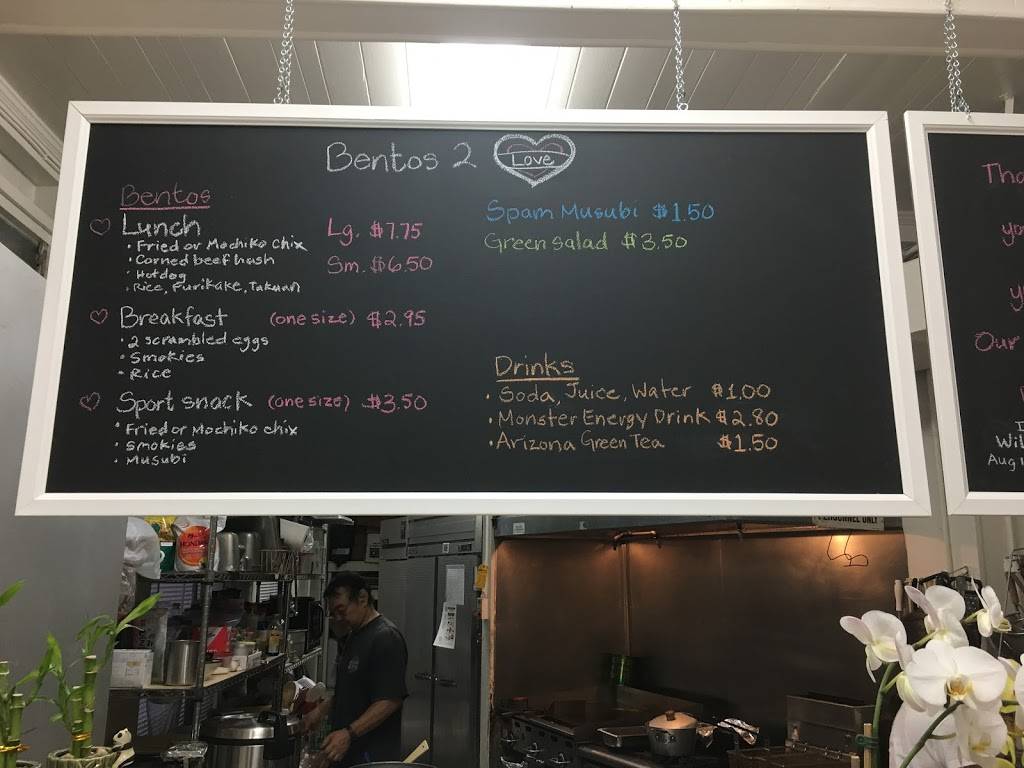 Bentos 2 Love
Bentos
Lunch Lg. $7.75
• Fried or Mochiko Chix
• Corned beef hash Sm. $6.50
• Hotdog
• Rice, Furikake, Takuan
Breakfast (one size) $2.95
• 2 scrambled eggs
• Smokies
• Rice
Sport snack (one size) $3.50
• Fried or Mochiko chix
• Smokies
• Musubi
Spam Musubi $1.50
Green Salad $3.50
Drinks
• Soda, Juice, Water $1.00
• Monster Energy Drink $2.80
• Arizona Green Tea $1.50
Our
Aug
PERSONNEL ONLY